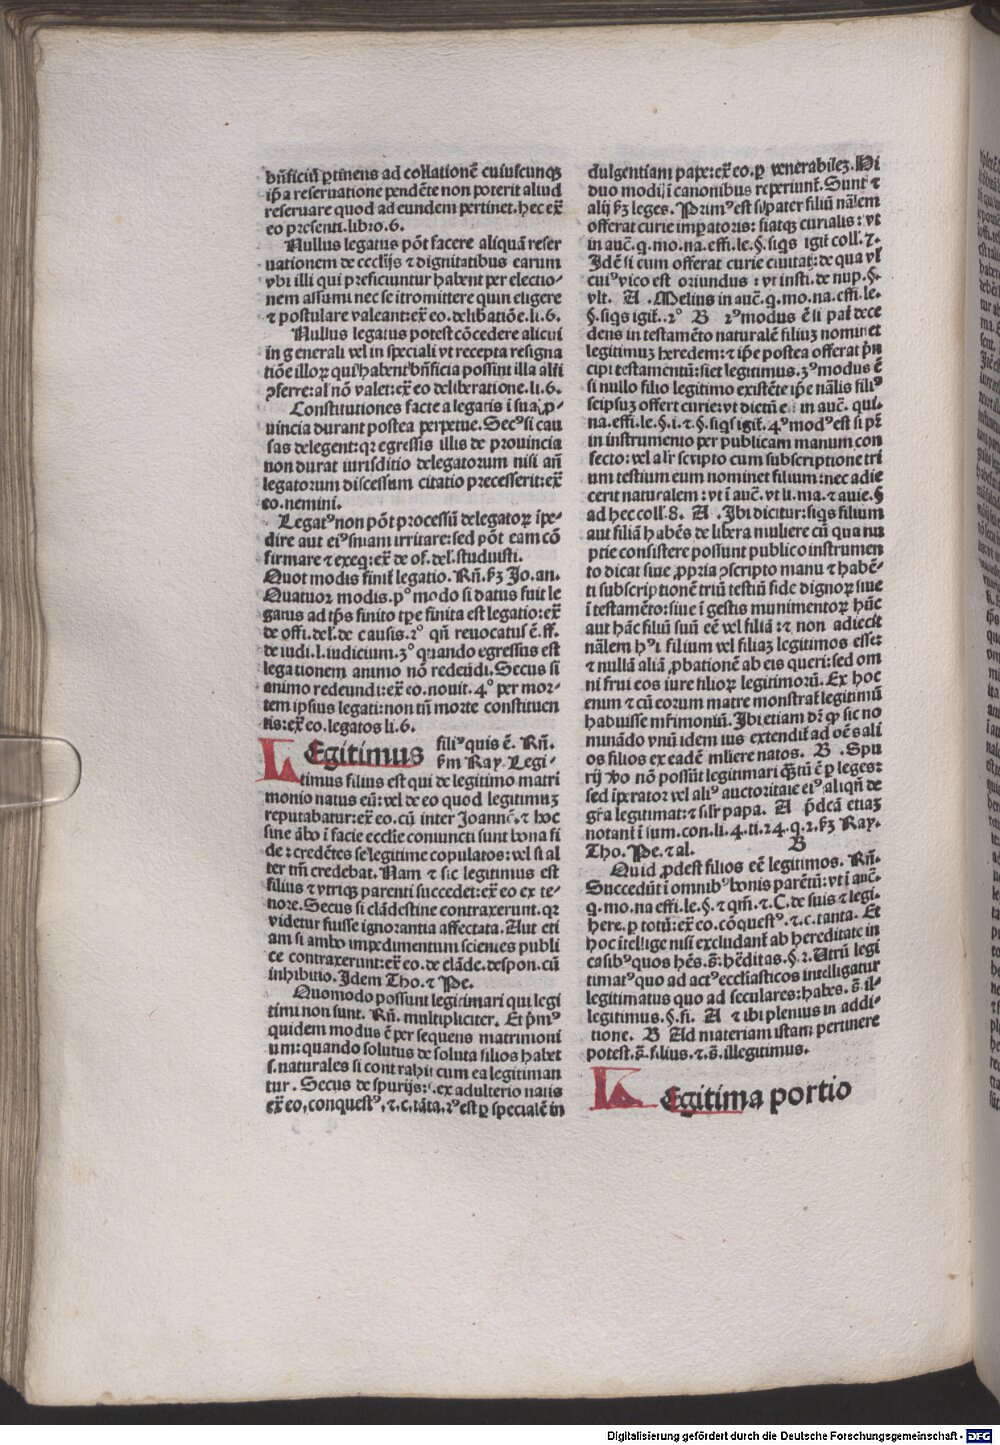 bñficiũ ꝑtinens ad collationẽ cuiuscunqꝫ
ip̃a reseruatione pendẽte non poterit aliud
reseruare quod ad eundem pertinet. hec ex̃
eo presenti. libro. 6.
Nullus legatus põt facere aliquã reser
uationem de ecclijs ⁊ dignitatibus earum
vbi illi qui preficiuntur habent per electio⸗
nem assumi nec se ĩtromittere quin eligere
⁊ postulare valeant: ex̃ eo. deliberatiõe. li. 6.
Nullus legatus potest cõcedere alicui
in generali vel in speciali vt recepta resigna
tiõe illoꝝ qui habent bñficia possint illa alij
ↄferre: al' nõ valet: ex̃ eo deliberatione. li. 6.
Constitutiones facte a legatis ĩ sua ꝓ⸗
uincia durant postea perpetue. Secꝰ si cau
sas delegent: qꝛ egressis illis de prouincia
non durat iurisditio delegatorum nisi añ
legatorum discessum citatio precesserit: ex̃
eo. nemini.
Legatꝰ non põt processũ delegatoꝝ ĩpe⸗
dire aut eiꝰ sniam irritare: sed põt eam cõ
firmare ⁊ exeq: ex̃ de of. del. studuisti.
Quot modis finit̃ legatio. Rñ. ẜm Jo. an.
Quatuor modis. pº modo si datus fuit le
gatus ad tp̃s finito tpe finita est legatio: ex̃
de offi. del. de causis. 2º qñ reuocatus ẽ. ff.
de iudi. l. iudicium. 3º quando egressus est
legationem animo nõ redeũdi. Secus si
animo redeundi: ex̃ eo. nouit. 4º per mor⸗
tem ipsius legati: non tñ morte constituen
tis: ex̃ eo. legatos li. 6.
LEgitimus filiꝰ quis ẽ. Rñ.
ẜm Ray. Legi⸗
timus filius est qui de legitimo matri
monio natus eũ: vel de eo quod legitimuꝫ
reputabatur: ex̃ eo. cũ inter Joannẽ. ⁊ hoc
siue ãbo ĩ facie ecclie coniuncti sunt bona fi
de: credẽtes se legitime copulatos: vel si al
ter tm̃ credebat. Nam ⁊ sic legitimus est
filius ⁊ vtriqꝫ parenti succedet: ex̃ eo ex te⸗
nore. Secus si clãdestine contraxerunt. qꝛ
videtur fuisse ignorantia affectata. Aut eti
am si ambo impedimentum scientes publi
ce contraxerunt: ex̃ eo. de clãde. despon. cũ
inhibitio. Jdem Tho. ⁊ Pe.
Quomodo possunt legitimari qui legi
timi non sunt. Rñ. multipliciter. Et p̃mꝰ
quidem modus ẽ per sequens matrimoni
um: quando solutus de soluta filios habet
s. naturales si contrahit cum ea legitiman
tur. Secus de spurijs: .ex adulterio natis
ex̃ eo, conquestꝰ, ⁊. c. tãta. 2ꝰ est ꝑ specialẽ in
dulgentiam pape: ex̃ eo. ꝑ venerabileꝫ. Hi
duo modi ĩ canonibus reperiunt̃. Sunt ⁊
alij ẜm leges. Primꝰ est si pater filiũ nãlem
offerat curie imperatoris: siatqꝫ curialis: vt
in aucẽ. q. mo. na. effi. le. §. siqs igit̃ coll'. 7.
Jdẽ si eum offerat curie ciuitat̃: de qua vl'
cuiꝰ vico est oriundus: vt insti. de nup. §.
vlt. A .Melius in aucẽ. q. mo. na. effi. le.
§. siqs igit̃. 2º B 2ꝰ modus ẽ si pat̃ dece
dens in testamẽto naturalẽ filiuꝫ nominet
legitimuꝫ heredem: ⁊ ip̃e postea offerat p̃n
cipi testamentũ: siet legitimus. 3ꝰ modus ẽ
si nullo filio legitimo existẽte ip̃e nãlis filiꝰ
seipsuꝫ offert curie: vt dictũ e in aucẽ. qui.
na. effi. le. §. i. ⁊ §. siqs igit̃. 4ꝰ modꝰ est si pr̃
in instrumento per publicam manum con
fecto: vel al'r scripto cum subscriptione tri
um testium eum nominet filium: nec adie
cerit naturalem: vt ĩ aucẽ. vt li. ma. ⁊ auie. §
ad hec coll'. 8. A .Jbi dicitur: siqs filium
aut filiã habẽs de libera muliere cũ qua nu
ptie consistere possunt publico instrumen
to dicat siue ꝓpria ↄscripto manu ⁊ habẽ⸗
ti subscriptionẽ triũ testiũ fide dignoꝝ siue
ĩ testamẽto: siue ĩ gestis munimentoꝝ hũc
aut hãc filiũ suũ eẽ vel filiã: ⁊ non adiecit
nãlem hꝰi filium vel filiaꝫ legitimos esse:
⁊ nullã aliã ꝓbationẽ ab eis queri: sed om
ni frui eos iure filioꝝ legitimorũ. Ex hoc
enim ⁊ cũ eorum matre monstrat̃ legitimũ
habuisse mr̃imoniũ. Jbi etiam dr̃ ꝙ sic no
minãdo vnũ idem ius extendit̃ ad oẽs ali
os filios ex eadẽ mliere natos. B .Spu
rij ꝟo nõ possũt legitimari qꝫtũ ẽ ꝑ leges:
sed ĩperator vel aliꝰ auctoritate eiꝰ aliqñ de
gr̃a legitimat: ⁊ sil'r papa. A p̃dcã etiaꝫ
notant ĩ sum. con. li. 4. ti. 24. q. 2. ẜm Ray.
Tho. Pe. ⁊ al. B
Quid ꝓdest filios eẽ legitimos. Rñ.
Succedũt ĩ omnibꝰ bonis parẽtũ: vt ĩ aucẽ.
q. mo. na effi. le. §. ⁊ qm̃. ⁊ C. de suis ⁊ legi.
here. ꝑ totũ: ex̃ eo. cõquestꝰ. ⁊. c. tanta. Et
hoc ĩtellige nisi excludant̃ ab hereditate in
casibꝰ quos hẽs. s̃. hẽditas. §. 2. Utrũ legi
timatꝰ quo ad actꝰ ecclĩasticos intelligatur
legitimatus quo ad seculares: habes. s̃. il⸗
legitimus. §. fi. A ⁊ ibi plenius in addi⸗
tione. B Ad materiam istam pertinere
potest. s̃. filius. ⁊. s̃. illegitimus.
LEgitima portio
Digitalisierung gefördert durch die Deutsche Forschungsgemeinschaft - DFG